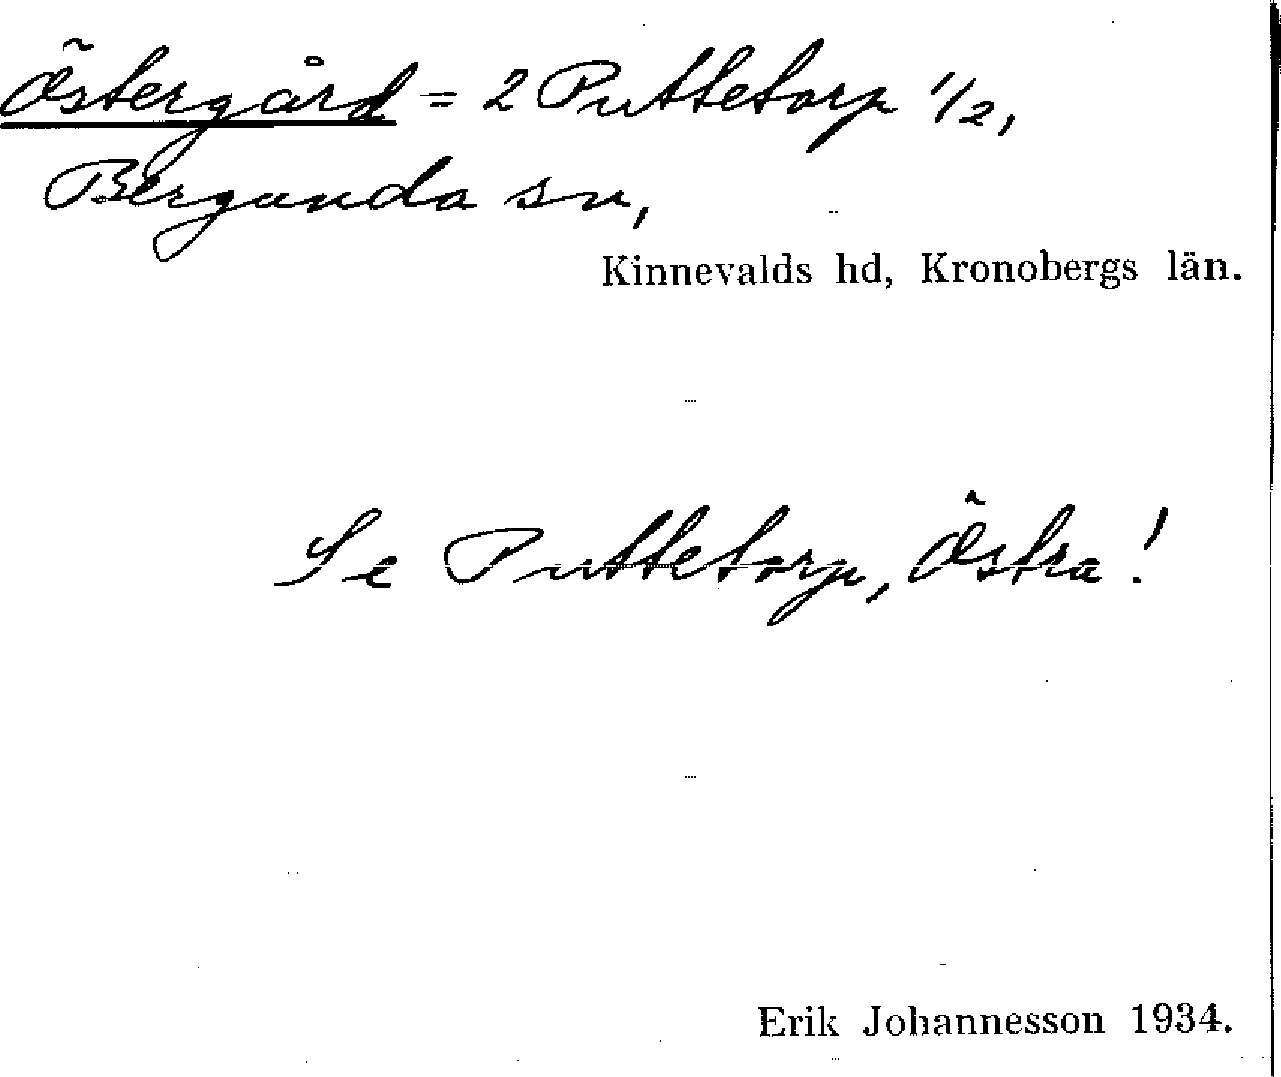 Östergård = 2 Puttetorp 1/2,
Bergunda sn,
Kinnevalds hd, Kronobergs län.
Se Puttetorp, Östra!
Erik Johannesson 1934.